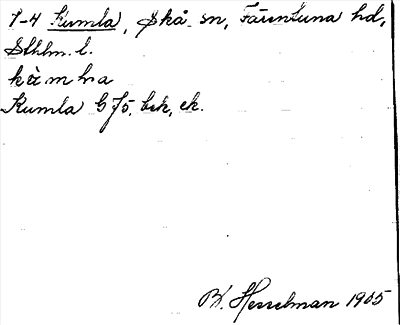 1-4 Kumla, Skå sn, Färentuna hd,
Sthlm. l.
Kumla G Jö, bek, ek.
B. Hesselman 1905